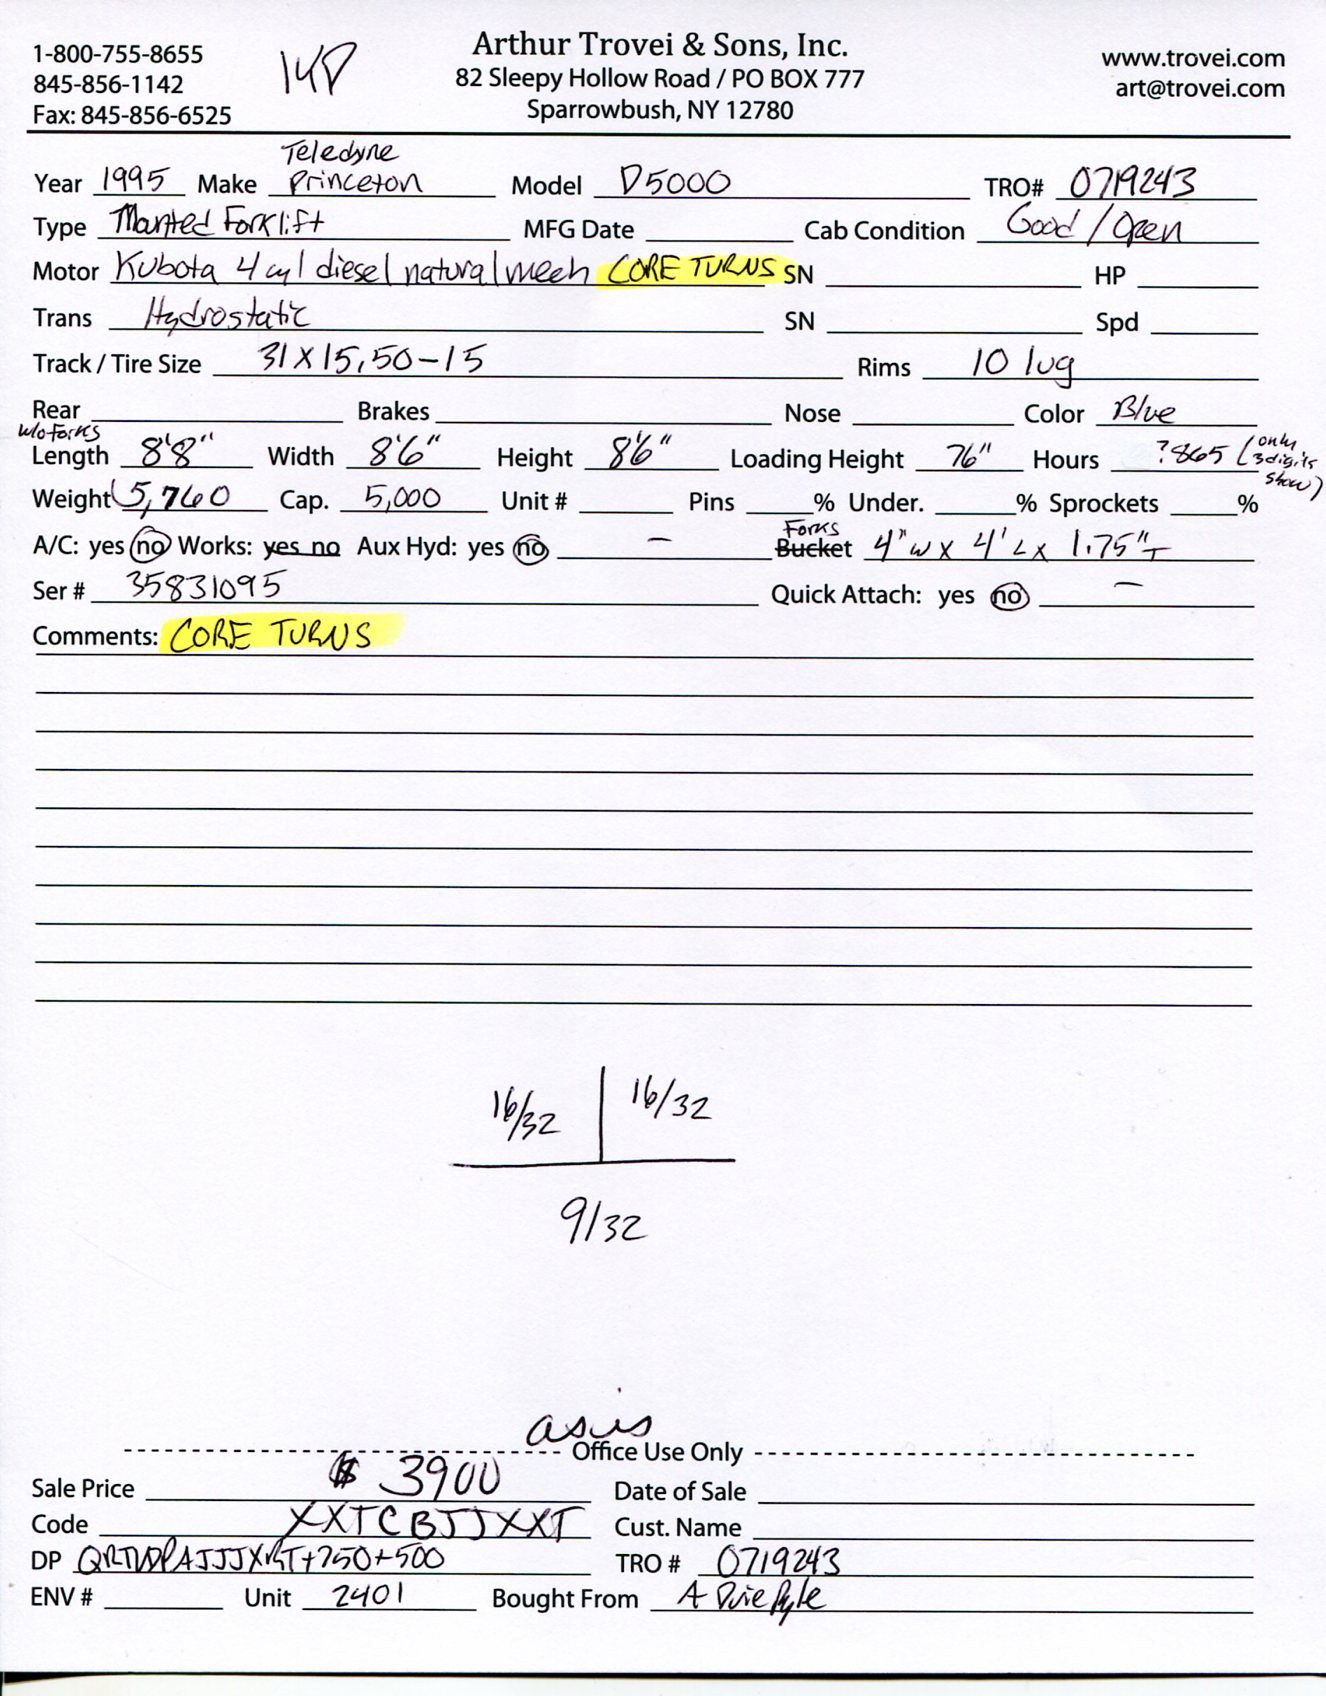 1-800-755-8655
845-856-1142
Fax: 845-856-6525
Arthur Trovei & Sons, Inc.
82 Sleepy Hollow Road / PO BOX 777
Sparrowbush, NY 12780
www.trovei.com
art@trovei.com
Teledyne
Year 1995 Make Princeton Model D5000 TRO# 0719243
Type Mounted Forklift MFG Date Cab Condition Good / Open
Motor Kubota 4 cyl diesel natural mech CORE TURNS SN HP
Trans Hydrostatic SN Spd
Track / Tire Size 31 X 15.50-15 Rims 10 lug
Rear Brakes Nose Color Blue
w/o Forks
Length 8'8" Width 8'6" Height 8'6" Loading Height 76" Hours ?865 (only 3 digits show)
Weight 5,760 Cap. 5,000 Unit # Pins % Under. % Sprockets %
Forks
A/C: yes no Works: yes no Aux Hyd: yes no — Bucket 4"W X 4'L X 1.75"T
Ser # 35831095 Quick Attach: yes no —
Comments: CORE TURNS
16/32 16/32
9/32
as is
Office Use Only
Sale Price $ 3900 Date of Sale
Code XXTCBJJXXT Cust. Name
DP +750+500 TRO # 0719243
ENV # Unit 2401 Bought From A